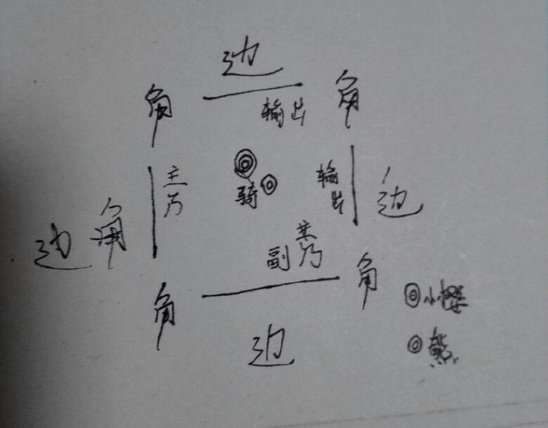 边
角
角
输出
主
乃
骑
输
出
边
边
角
副
主乃
角
角
边
小怪
熊